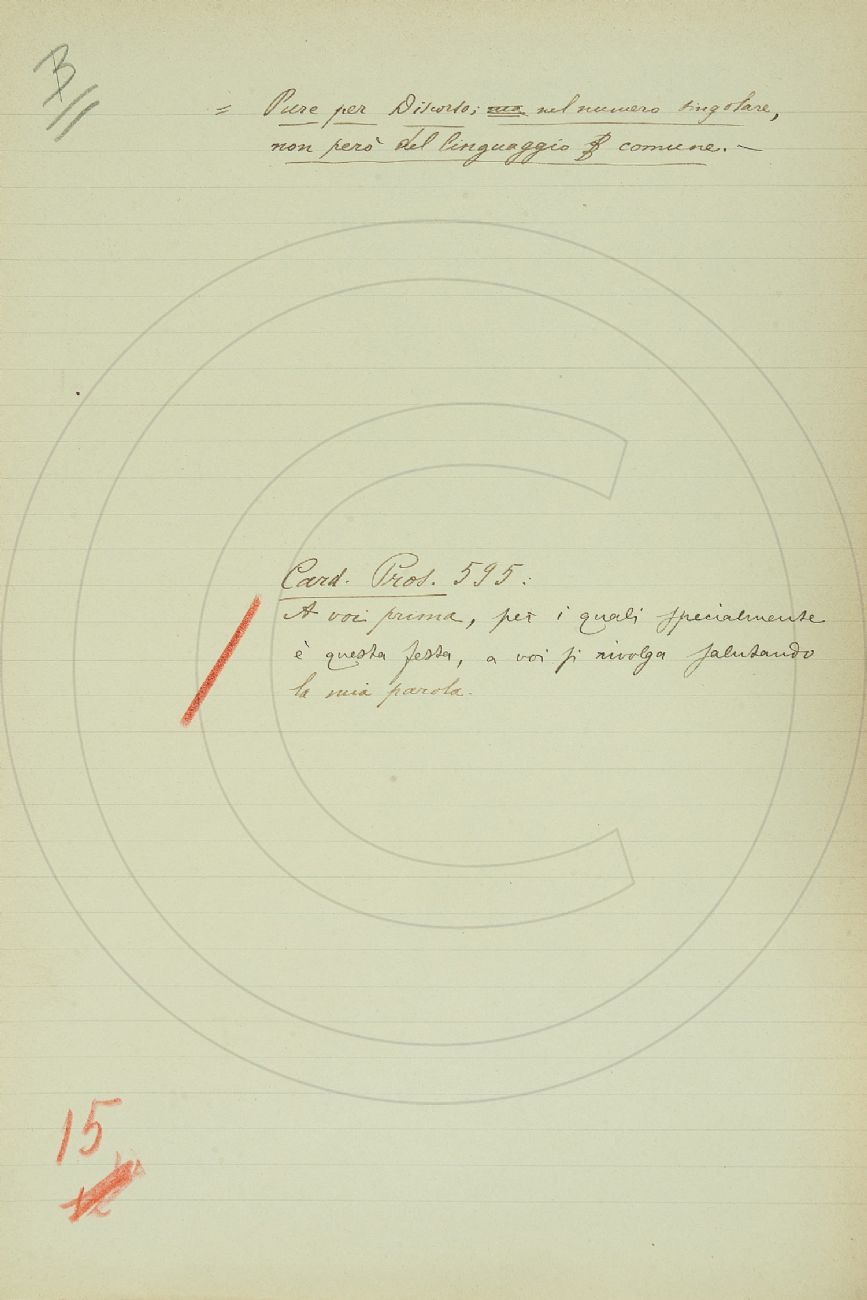 B
= Pure per Discorso; nel numero singolare,
non però del linguaggio comune. —
Card. Pros. 595:
A voi prima, per i quali specialmente
è questa festa, a voi si rivolga salutando
la mia parola.
15